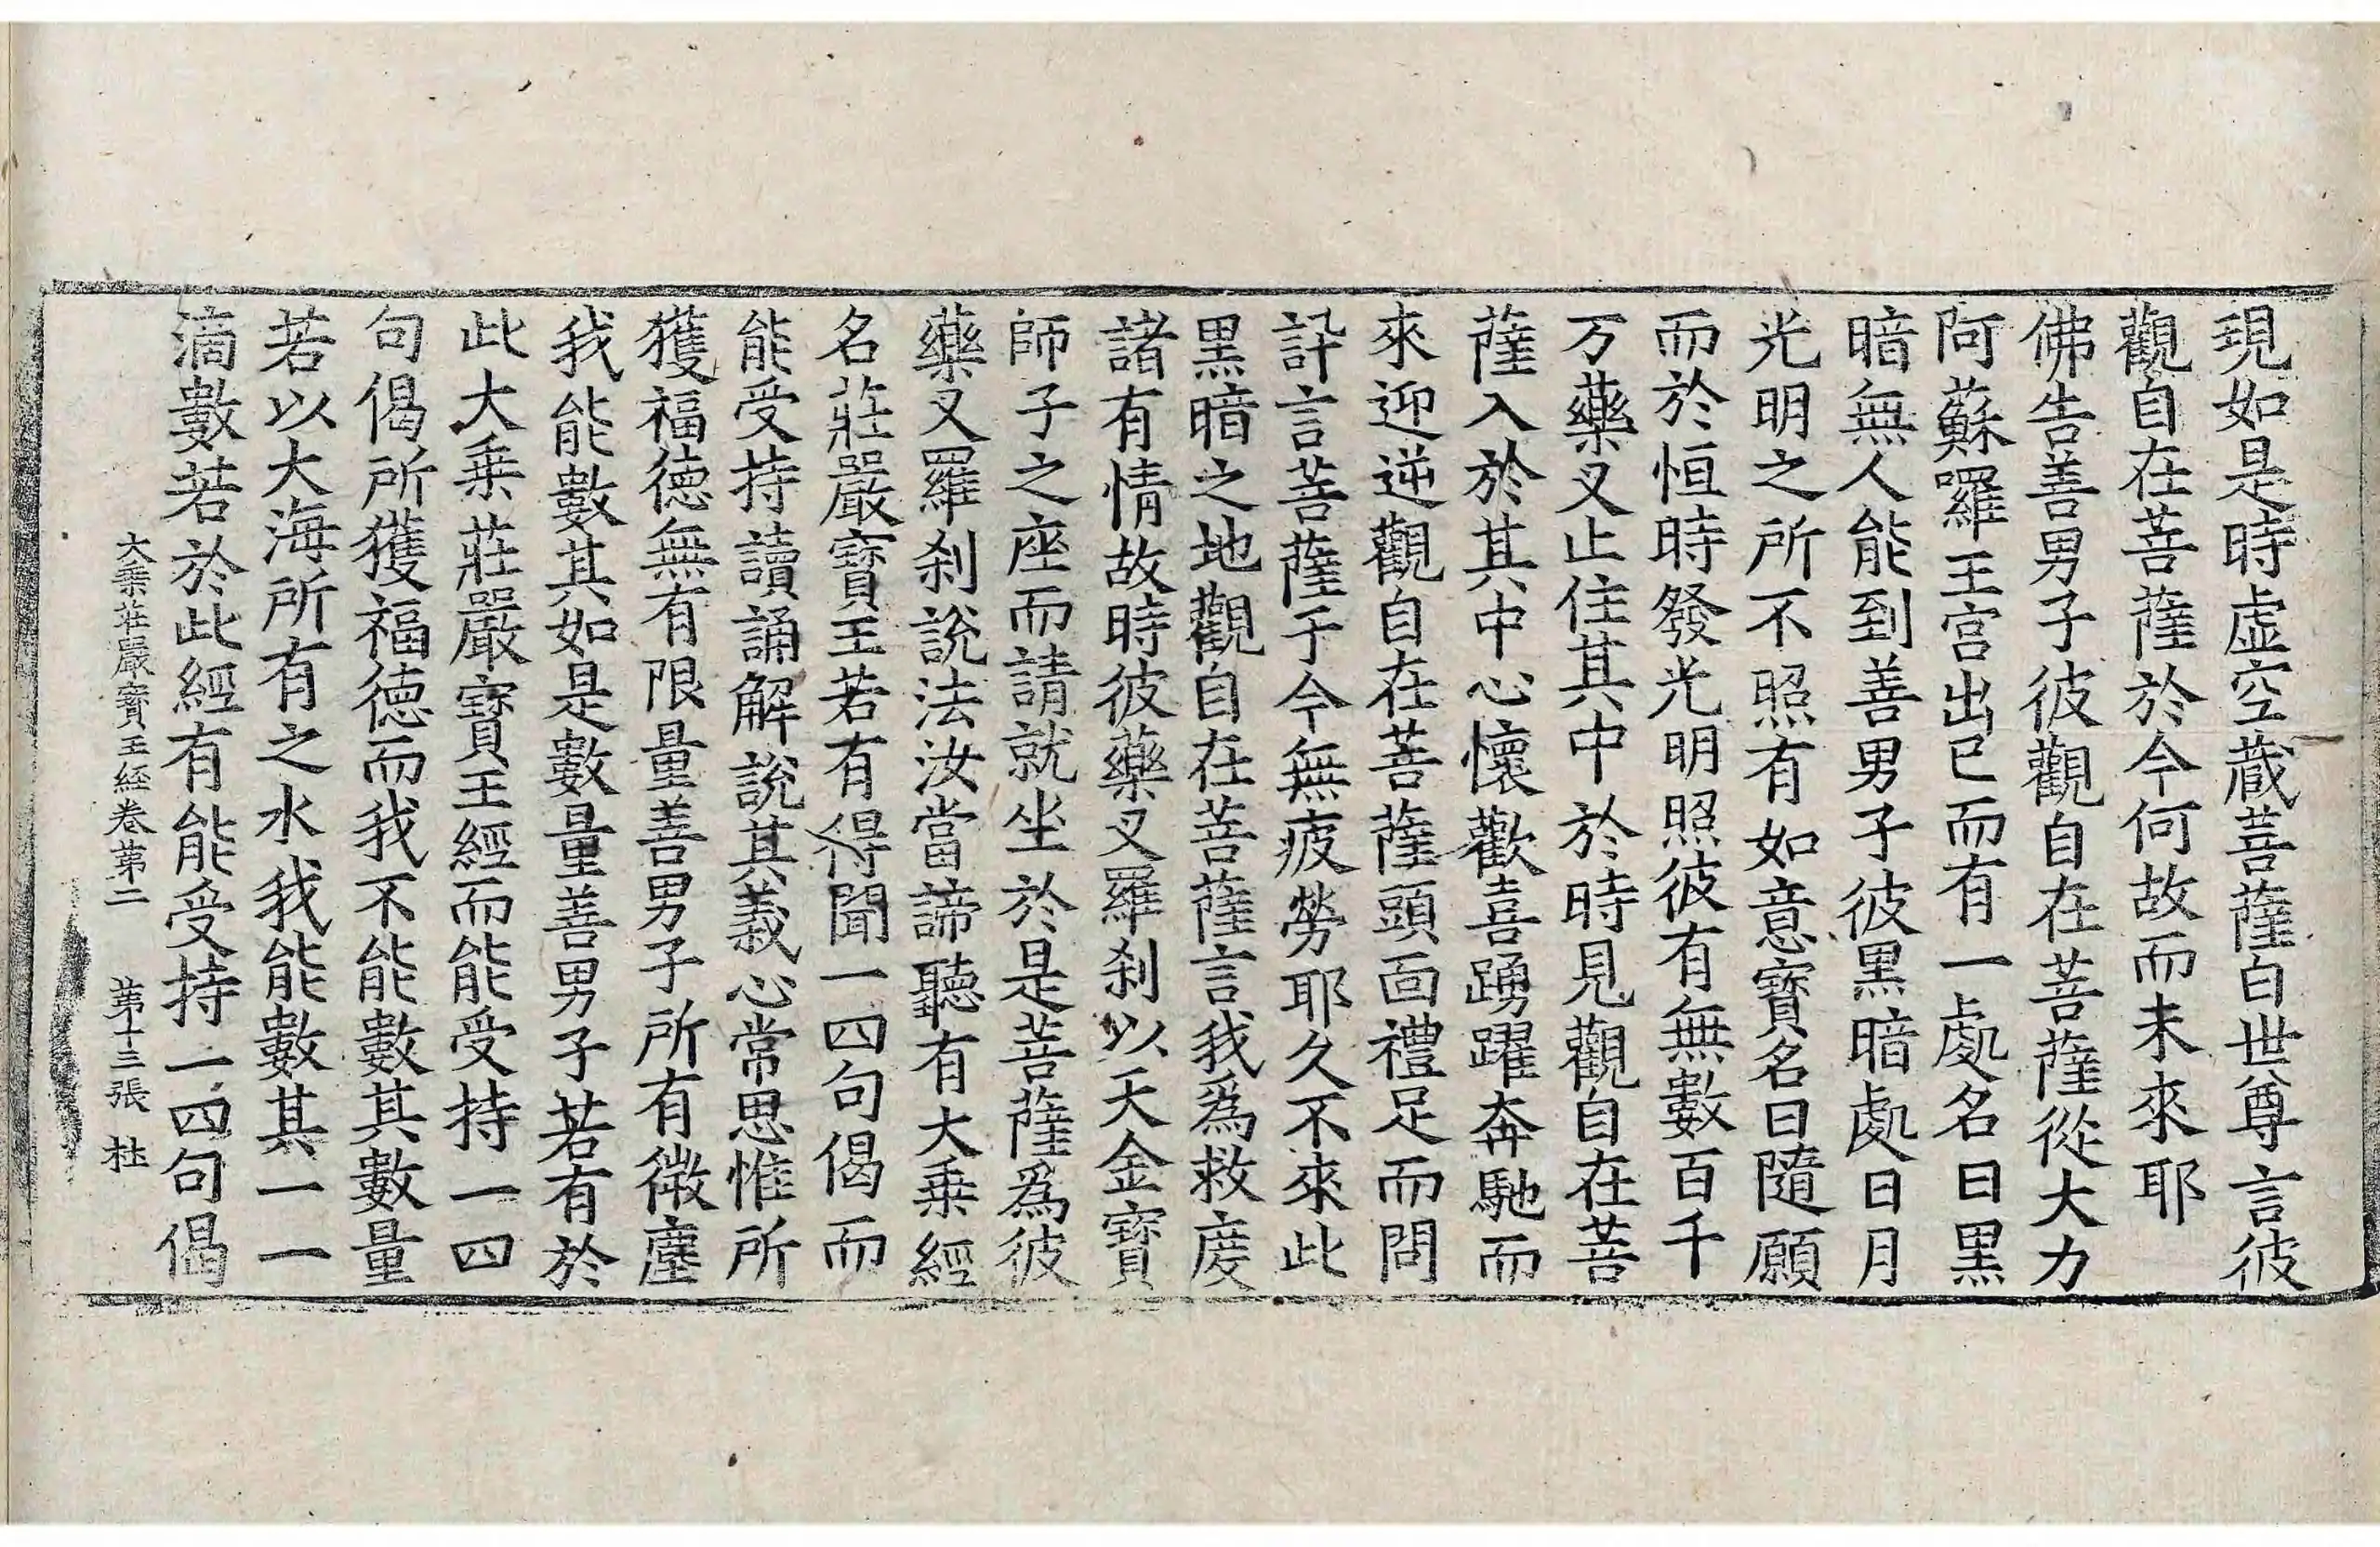 現如是時虛空蔵菩薩白世尊言彼
觀自在菩薩於今何故而未來耶
佛告善男子彼觀自在菩薩從大力
阿蘇囉王宮出已而有一處名曰黑
暗無人能到善男子彼黑暗處日月
光明之所不照有如意寶名曰隨願
而於恒時發光明照彼有無數百千
万藥叉止住其中於時見觀自在菩
薩入於其中心懷歡喜踴躍奔馳而
來迎逆觀自在菩薩頭面禮足而問
訊言菩薩于今無疲勞耶久不來此
黑暗之地觀自在菩薩言我為救度
諸有情故時彼藥叉羅剎以天金寶
師子之座而請就坐於是菩薩為彼
藥叉羅剎說法汝當諦聽有大乘經
名莊嚴寶王若有得聞一四句偈而
能受持讀誦解說其義心常思惟所
獲福德無有限量善男子所有微塵
我能數其如是數量善男子若有於
此大乘莊嚴寶王經而能受持一四
句偈所獲福德而我不能數其數量
若以大海所有之水我能數其一一
滴數若於此經有能受持一四句偈
大乘莊嚴寶王經卷第二　第十三張　杜